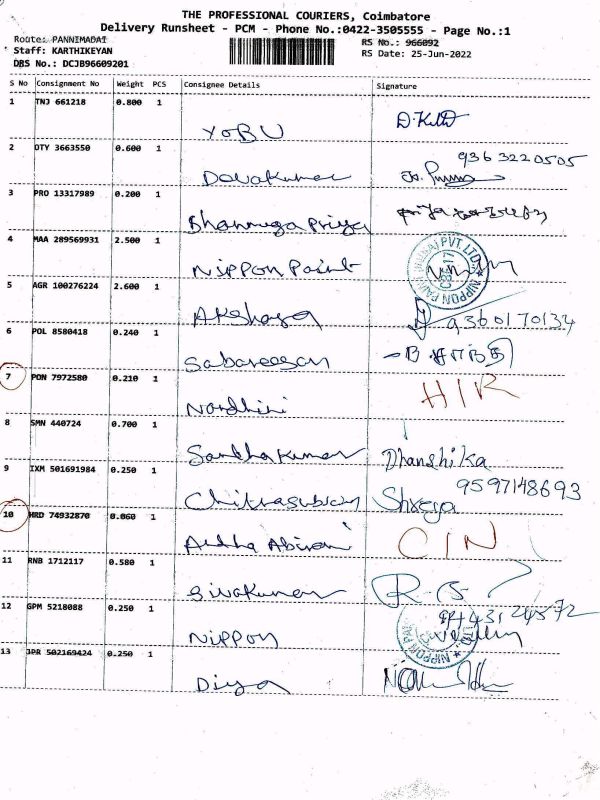 THE PROFESSIONAL COURIERS, Coimbatore
Delivery Runsheet - PCM - Phone No.:0422-3505555 - Page No.:1
Route: PANNIMADAI
RS No.: 966092
Staff: KARTHIKEYAN
RS Date: 25-Jun-2022
DBS No.: DCJB96609201
S No Consignment No Weight PCS Consignee Details Signature
1 TNJ 661218 0.800 1
YOBU
2 OTY 3663550 0.600 1 9363220505
Devakumar
3 PRO 13317989 0.200 1
Bhanmuga Priya
4 MAA 289569931 2.500 1
Nippon Paint
5 AGR 100276224 2.600 1
Akshaya 9360170134
6 POL 8580418 0.240 1
Sabareesan
7 PON 7972580 0.210 1
Nandhini
8 SMN 440724 0.700 1
Santhakumar Dhanshika
9 IXM 501691984 0.250 1 9597148693
Shreja
10 HRD 74932870 0.060 1 CIN
Abirami
11 RNB 1712117 0.580 1
Sivakumar
12 GPM 5218088 0.250 1
Nippon
13 JPR 502169424 0.250 1
Diya